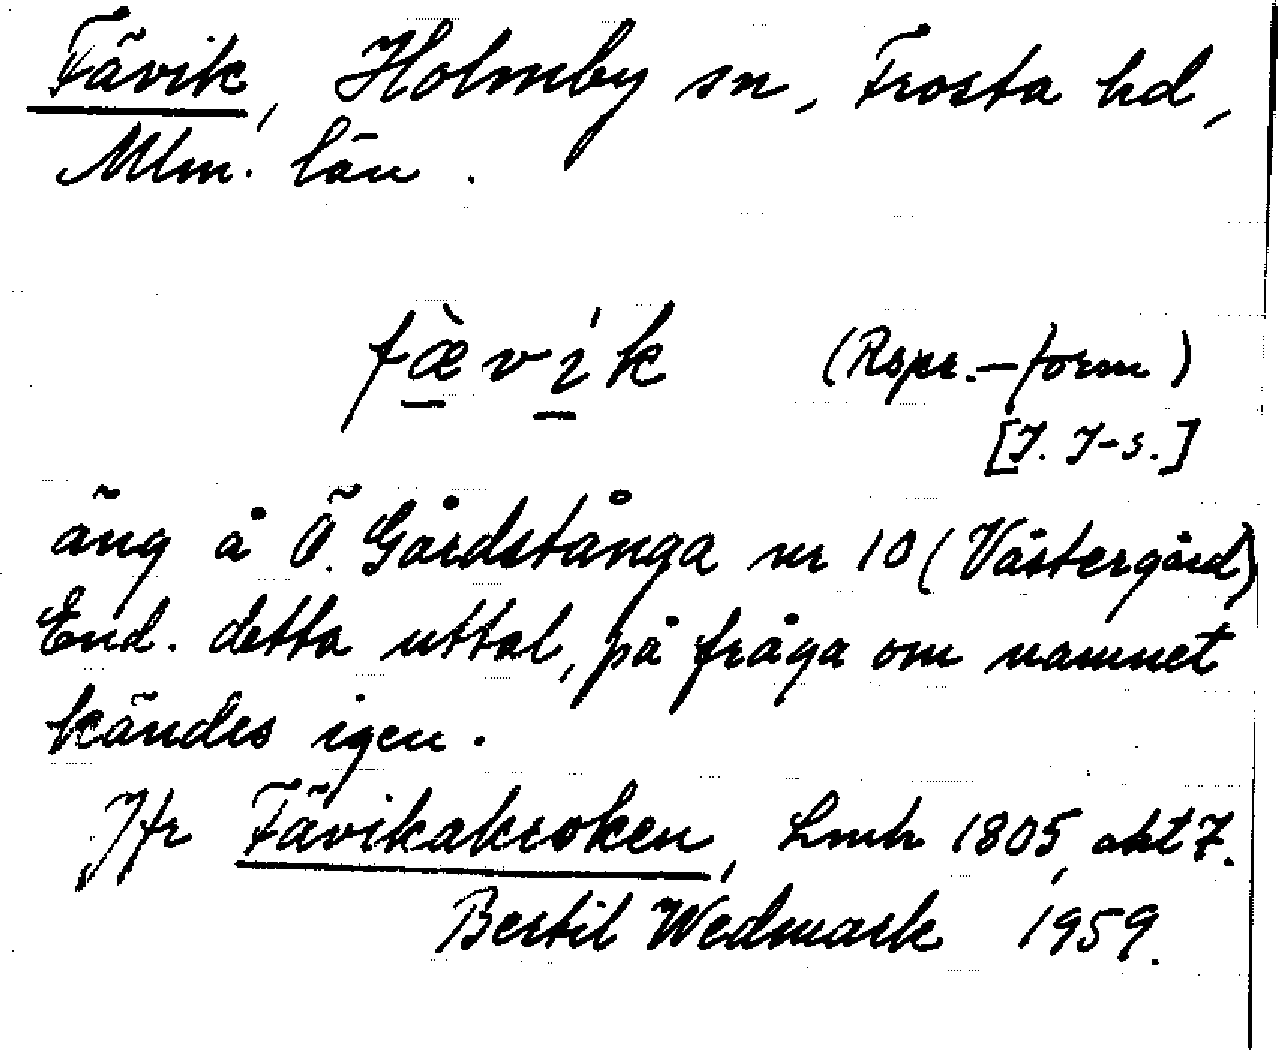 Fävik, Holmby sn, Frosta hd,
Mlm. län.
fæ̀vík (Rspr.-form)
[J. J-s.]
äng å Ö. Gårdstånga nr 10 (Västergård)
End. detta uttal, på fråga om namnet
kändes igen.
Jfr Fävikakroken, Lmh 1805, akt 7.
Bertil Wedmark 1959.